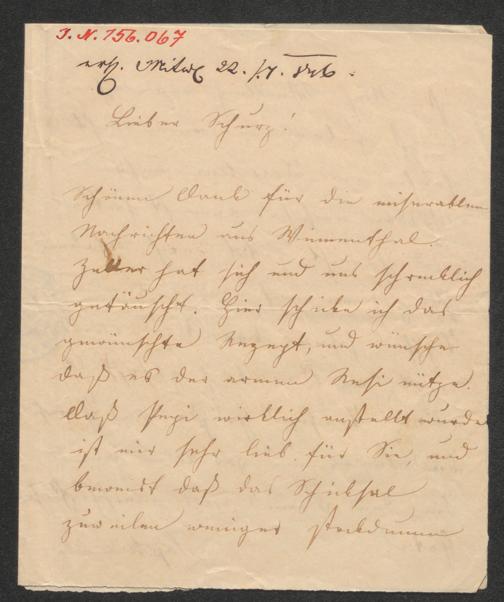 I. N. 156.067
erh. Mittw. 22. /7. 846.
Lieber Schurz!
Schönen Dank für die miserablen
Nachrichten aus Winnenthal.
Zeller hat sich und uns schrecklich
getäuscht. Hier schicke ich das
gewünschte Rezept, und wünsche
daß es der armen Resi nütze.
Daß Pepi wirklich anstellt wurde
ist mir sehr lieb für Sie, und
beweist daß das Schicksal
zuweilen weniger stockdumm